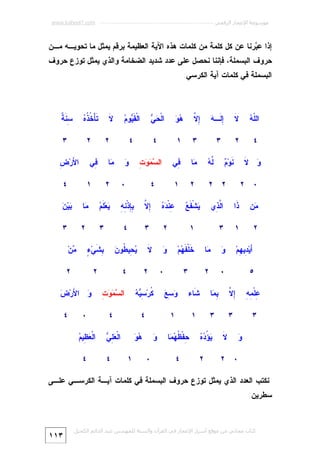 www.kaheel7.com موسوعة الإعجاز الرقمي
إذا عبّرنا عن كل كلمة من كلمات هذه الآية العظيمة برقم يمثل ما تحويـــه مـــن
حروف البسملة، فإننا نحصل على عدد شديد الضخامة والذي يمثل توزع حروف
البسملة في كلمات آية الكرسي
اللَّهُ لَا إِلَـــهَ إِلاَّ هُوَ الْحَيُّ الْقَيُّومُ لَا تَأْخُذُهُ سِنَةٌ
٤ ٢ ٣ ٣ ١ ٤ ٤ ٢ ٢ ٣
وَ لَا نَوْمٌ لَّهُ مَا فِي السَّمَوَتِ وَ مَا فِي الأَرْضِ
٠ ٢ ٢ ٢ ٢ ١ ٤ ٠ ٢ ١ ٤
مَن ذَا الَّذِي يَشْفَعُ عِنْدَهُ إِلاَّ بِإِذْنِهِ يَعْلَمُ مَا بَيْنَ
٢ ١ ٣ ١ ٢ ٣ ٤ ٣ ٢ ٣
أَيْدِيهِمْ وَ مَا خَلْفَهُمْ وَ لَا يُحِيطُونَ بِشَيْءٍ مِّنْ
٥ ٠ ٢ ٣ ٠ ٢ ٤ ٢ ٢
عِلْمِهِ إِلاَّ بِمَا شَاءَ وَسِعَ كُرْسِيُّهُ السَّمَوَتِ وَ الأَرْضَ
٣ ٣ ٣ ١ ١ ٤ ٤ ٠ ٤
وَ لَا يَؤُدُهُ حِفْظُهُمَا وَ هُوَ الْعَلِيُّ الْعَظِيمُ
٠ ٢ ٢ ٤ ٠ ١ ٤ ٤
نكتب العدد الذي يمثل توزع حروف البسملة في كلمات آيـــة الكرســـي علـــى
سطرين
كتاب مجاني من موقع أسرار الإعجاز في القرآن والسنة للمهندس عبد الدائم الكحيل
١١٣